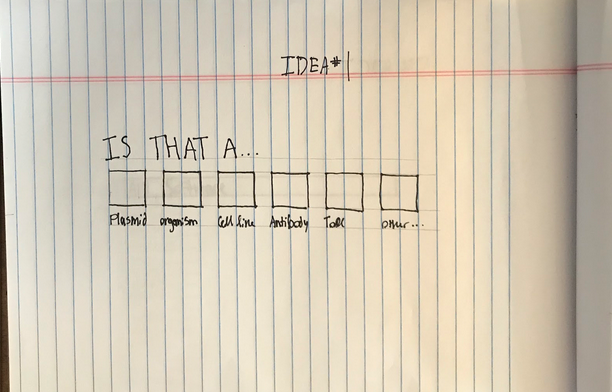 IDEA#1
IS THAT A...
Plasmid organism Cell line Antibody Tool other...